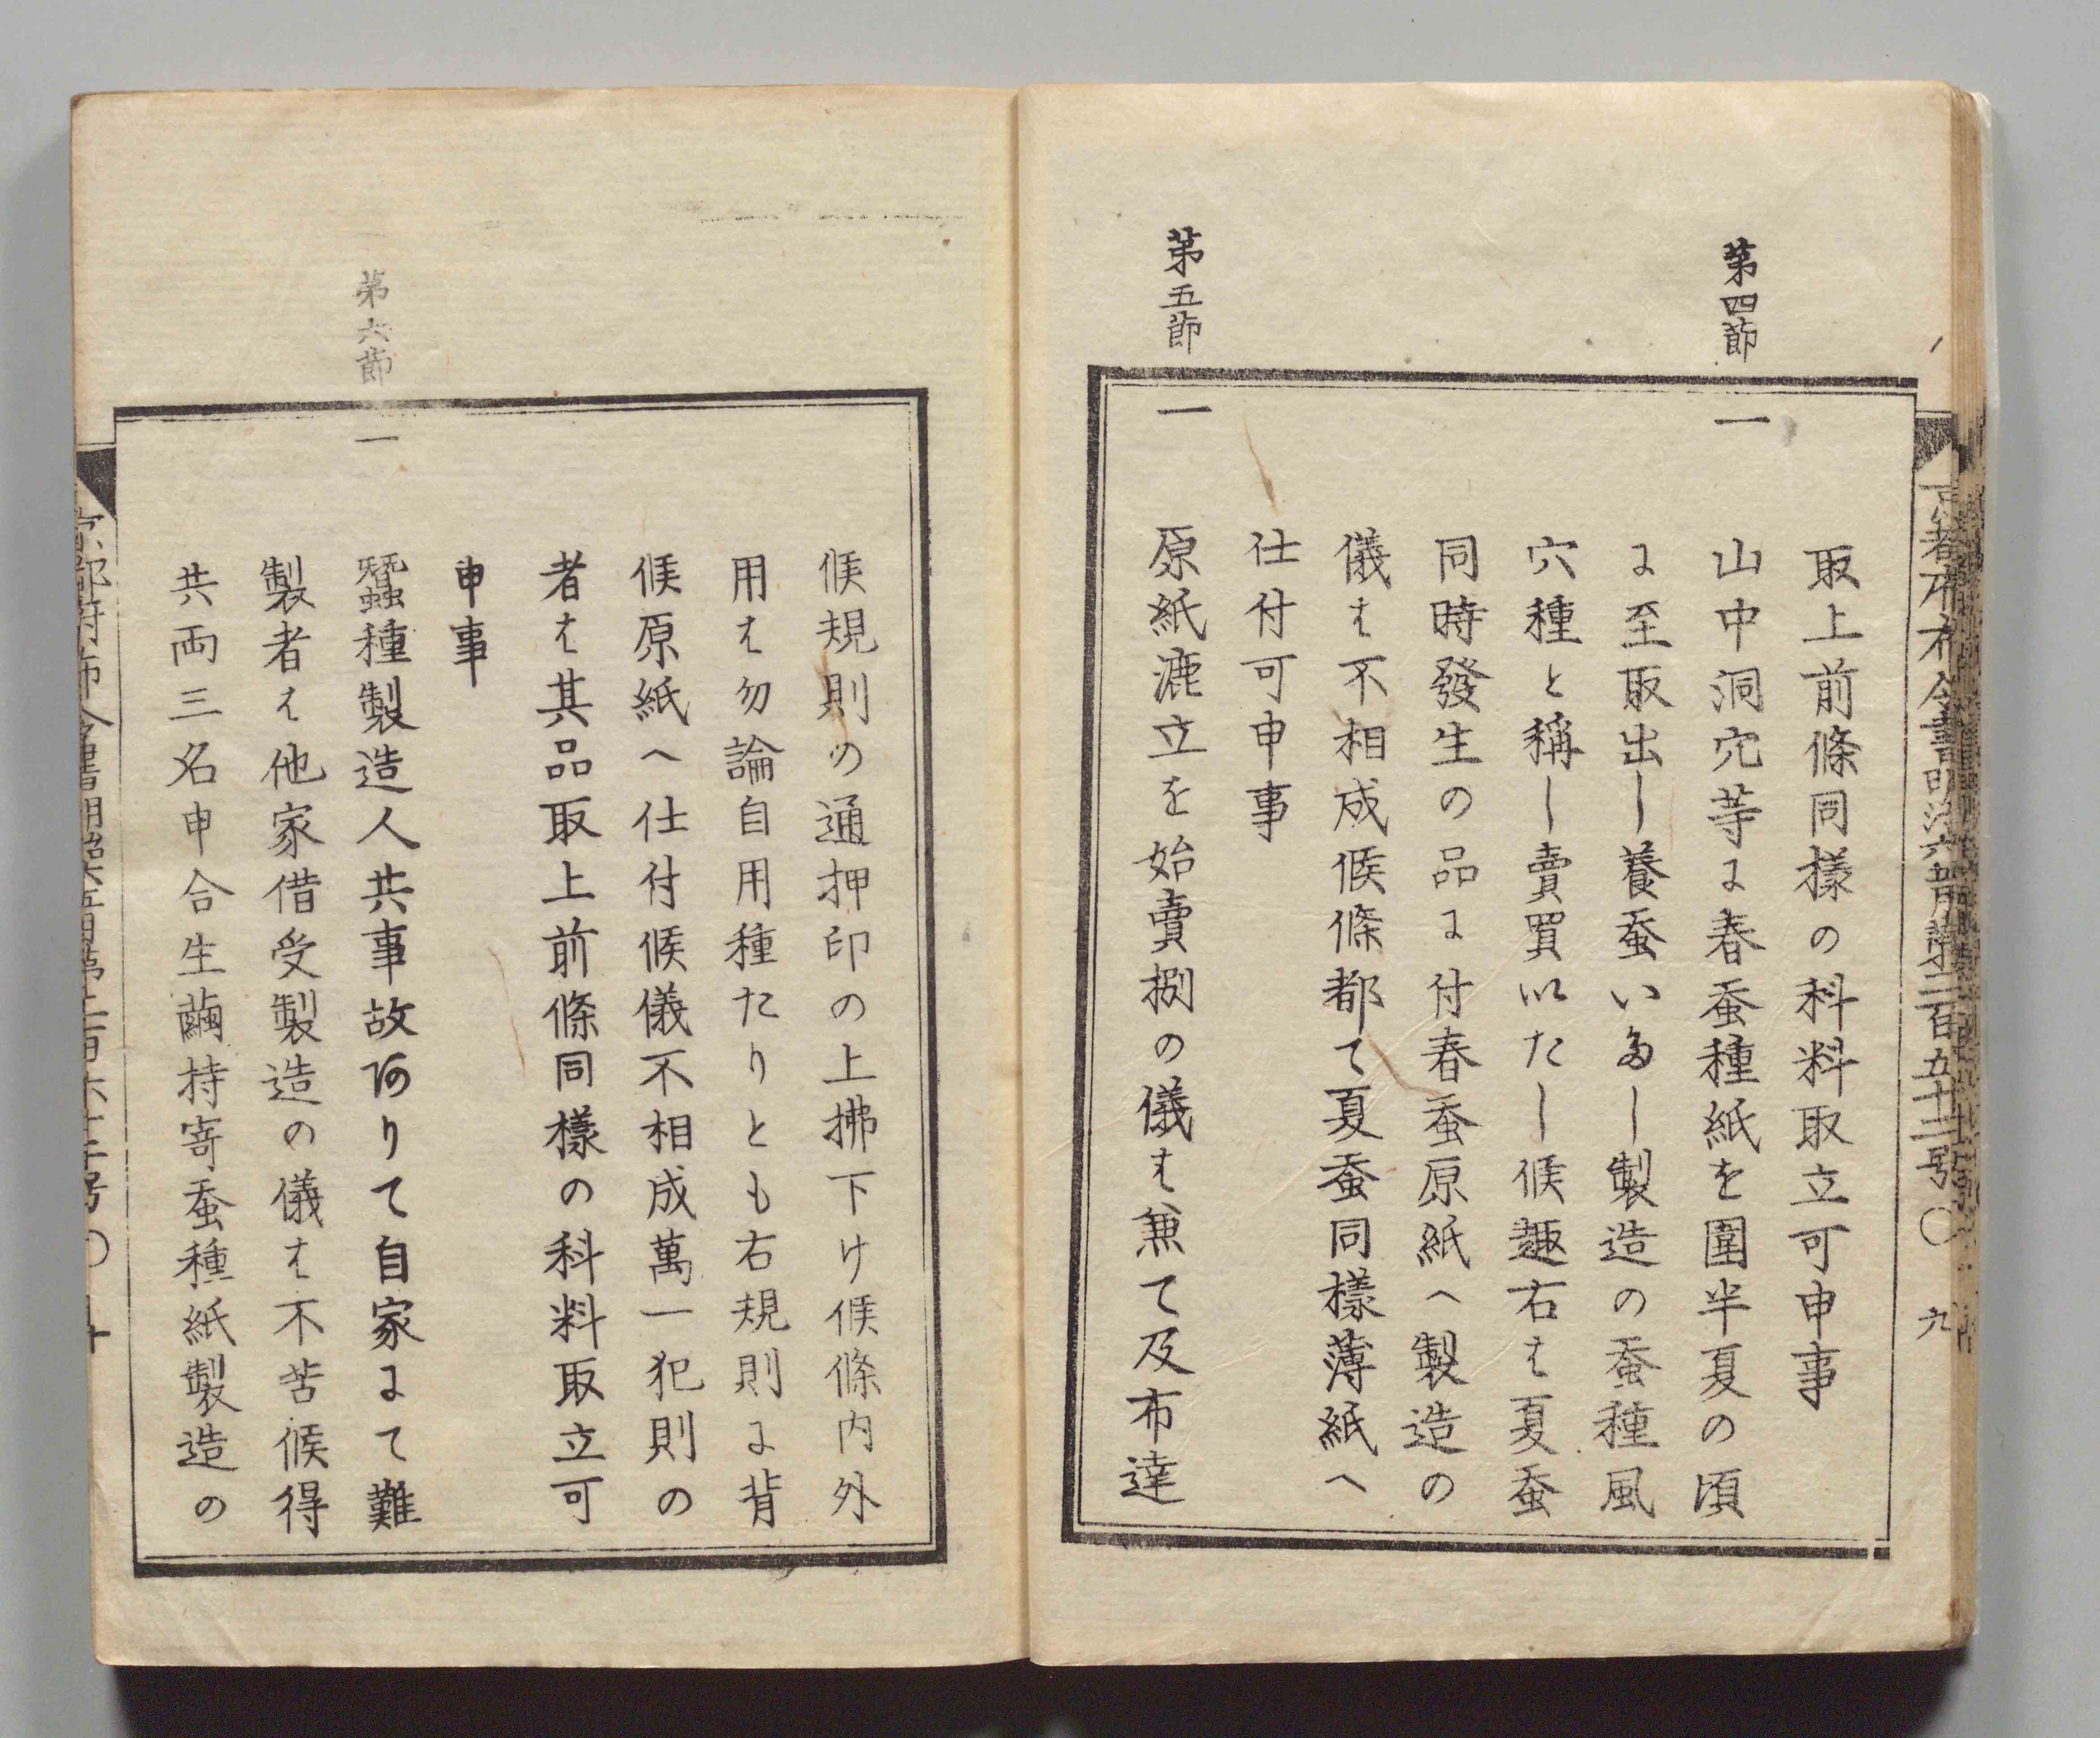 取上前條同樣の科料取立可申事
第四節
一
山中洞穴䓁に春蚕種紙を圍半夏の頃
に至取出し養蚕いたし製造の蚕種風
穴種と稱し賣買いたし候趣右は夏蚕
同時發生の品に付春蚕原紙へ製造の
儀は不相成候條都て夏蚕同樣薄紙へ
仕付可申事
第五節
一
原紙漉立を始賣捌の儀は兼て及布達
候規則の通押印の上拂下け候條内外
用は勿論自用種たりとも右規則に背
候原紙へ仕付候儀不相成萬一犯則の
者は其品取上前條同樣の科料取立可
申事
第六節
一
蠶種製造人共事故ありて自家にて難
製者は他家借受製造の儀は不苦候得
共両三名申合生繭持寄蚕種紙製造の